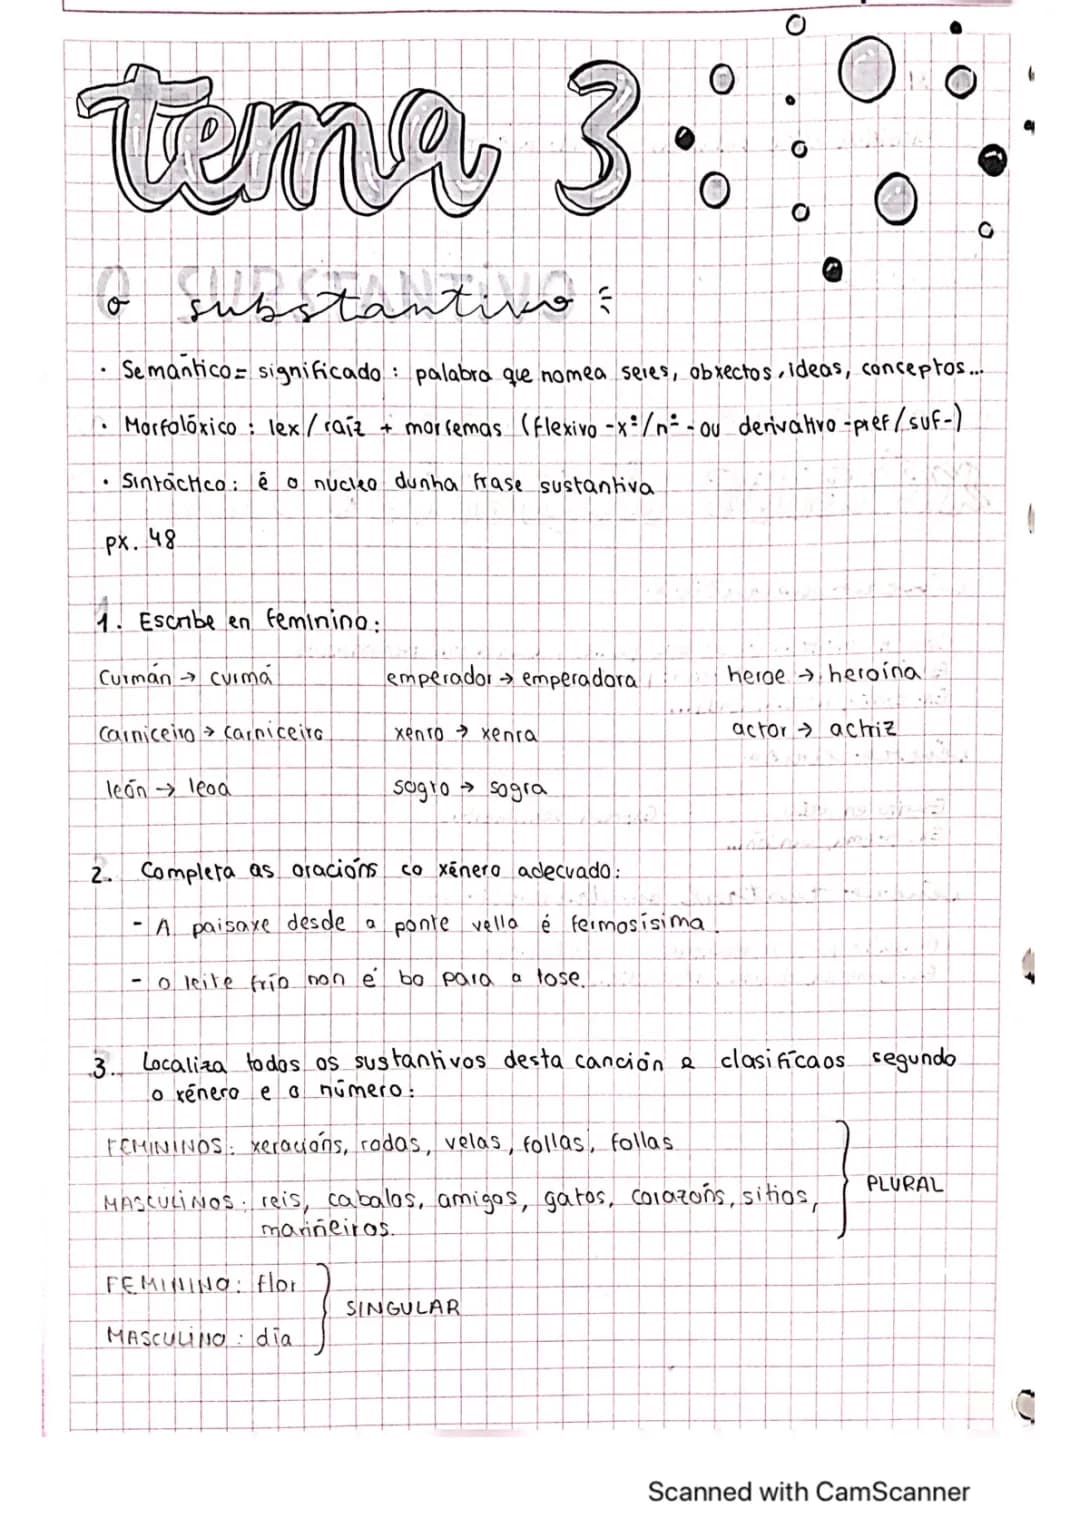 tema 3
O SUBSTANTIVO
o substantivo :
· Semántico = significado : palabra que nomea seres, obxectos, ideas, conceptos...
· Morfolóxico : lex / raíz + morfemas (flexivo -xº/nº- ou derivativo -pref/suf-)
· Sintáctico : é o núcleo dunha frase sustantiva
px. 48
1. Escribe en feminino :
Curmán → curmá emperador → emperadora heroe → heroína
Carniceiro → carniceira xenro → xenra actor → actriz
león → leoa sogro → sogra
2. Completa as oracións co xénero adecuado :
- A paisaxe desde a ponte vella é fermosísima.
- o leite frío non é bo para a tose.
3. Localiza todos os sustantivos desta canción e clasifícaos segundo
o xénero e o número :
FEMININOS : xeracións, rodas, velas, follas, follas
MASCULINOS : reis, cabalos, amigos, gatos, corazóns, sitios, PLURAL
mariñeiros.
FEMININO : flor
SINGULAR
MASCULINO : día
Scanned with CamScanner